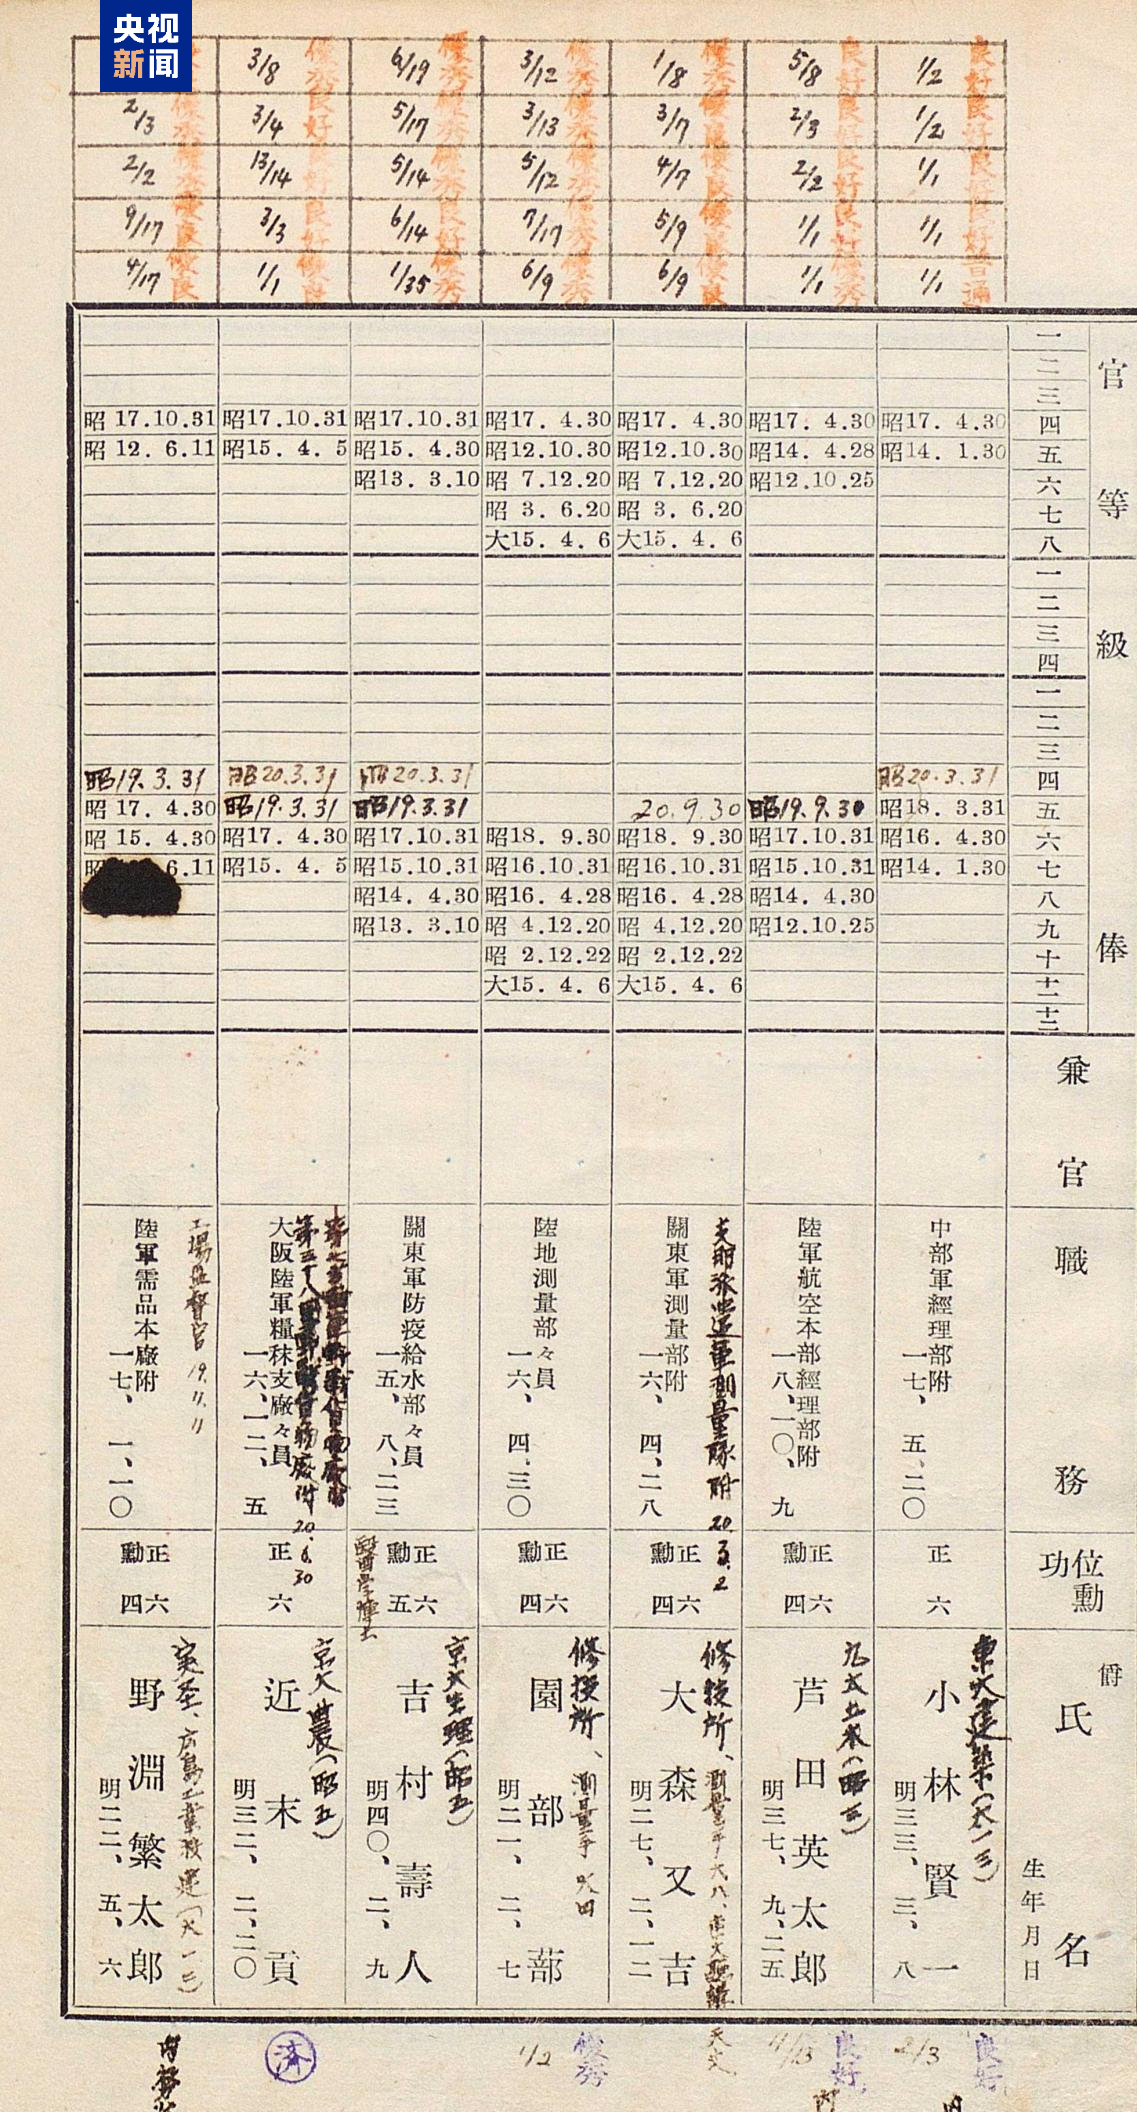 央视
新闻
良好 良好 良好 良好 普通
1/2 1/2 1/1 1/1 1/1
5/8 2/3 2/2 1/1 1/1
1/8 3/7 4/7 5/9 6/9
3/12 3/13 5/12 7/17 6/9
6/19 5/17 5/14 6/14 1/35
3/8 3/4 13/14 3/3 1/1
2/3 2/2 9/17 4/17
官等
一 二 三 四 五 六 七 八
級俸
一 二 三 四
一 二 三 四 五 六 七 八 九 十 十一 十二
兼官
職務
位勳功
爵
氏名
生年月日
昭17. 4.30
昭14. 1.30
昭20.3.31
昭18. 3.31
昭16. 4.30
昭14. 1.30
中部軍經理部附
一七、五、二〇
正六
東大建築(大一三)
小林賢一
明三三、三、八
昭17. 4.30
昭14. 4.28
昭12.10.25
昭19.9.30
昭17.10.31
昭15.10.31
昭14. 4.30
昭12.10.25
陸軍航空本部經理部附
一八、一〇、九
正六
勳四
九大土木(昭三)
芦田英太郎
明三七、九、二五
昭17. 4.30
昭12.10.30
昭 7.12.20
昭 3. 6.20
大15. 4. 6
20.9.30
昭18. 9.30
昭16.10.31
昭16. 4.28
昭 4.12.20
昭 2.12.22
大15. 4. 6
支那派遣軍測量隊附 20.3.2
關東軍測量部附
一六、四、二八
正六
勳四
修技所、
大森又吉
明二七、二、一二
昭17. 4.30
昭12.10.30
昭 7.12.20
昭 3. 6.20
大15. 4. 6
昭18. 9.30
昭16.10.31
昭16. 4.28
昭 4.12.20
昭 2.12.22
大15. 4. 6
陸地測量部々員
一六、四、三〇
正六
勳四
修技所、測量手
園部蔀
明二一、二、七
昭17.10.31
昭15. 4.30
昭13. 3.10
昭20.3.31
昭19.3.31
昭17.10.31
昭15.10.31
昭14. 4.30
昭13. 3.10
關東軍防疫給水部々員
一五、八、二三
正六
勳五
醫學博士
京大生理(昭五)
吉村壽人
明四〇、二、九
昭17.10.31
昭15. 4. 5
昭20.3.31
昭19.3.31
昭17. 4.30
昭15. 4. 5
大阪陸軍糧秣支廠々員
一六、一二、五
20.6.30
正六
京大農(昭五)
近末貢
明三二、二、二〇
昭 17.10.31
昭 12. 6.11
昭19.3.31
昭 17. 4.30
昭 15. 4.30
昭
6.11
工場監督官 19.11.11
陸軍需品本廠附
一七、一、一〇
正六
勳四
野淵繁太郎
明二二、五、六
良好
2/3
良好
4/13
天文
優秀
1/2
済